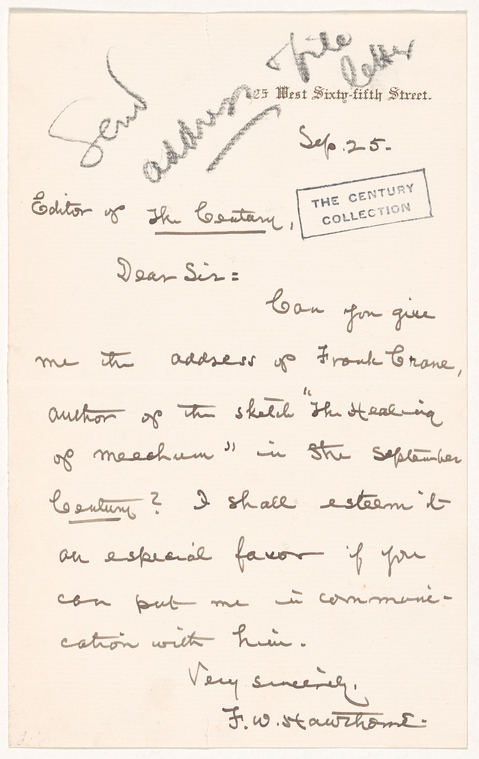 Send
address
& file
letter
25 West Sixty-fifth Street.
Sep. 25-
THE CENTURY
COLLECTION
Editor of The Century,
Dear Sir:
Can you give
me the address of Frank Crane,
author of the sketch "The Healing
of Meechum" in the September
Century? I shall esteem it
an especial favor if you
can put me in communi-
cation with him.
Very sincerely,
F. W. Hawthorne-